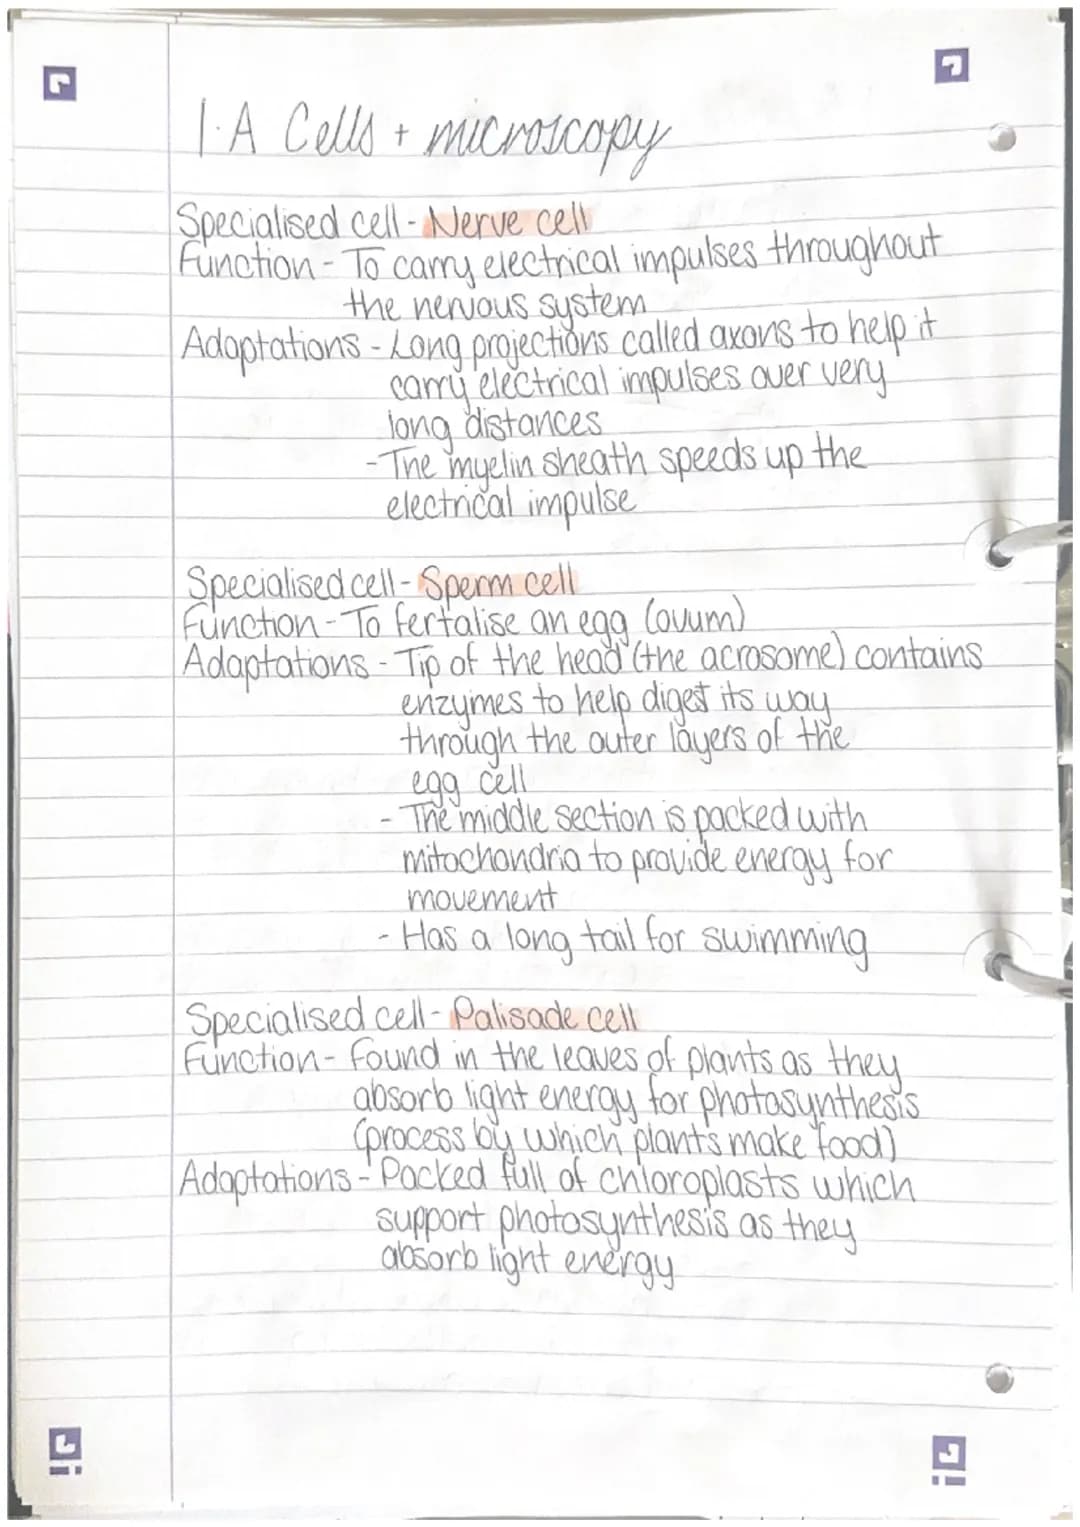 1.A Cells + microscopy
Specialised cell - Nerve cell
Function - To carry electrical impulses throughout
the nervous system
Adaptations - Long projections called axons to help it
carry electrical impulses over very
long distances
- The myelin sheath speeds up the
electrical impulse
Specialised cell - Sperm cell
Function - To fertalise an egg (ovum)
Adaptations - Tip of the head (the acrosome) contains
enzymes to help digest its way
through the outer layers of the
egg cell
- The middle section is packed with
mitochondria to provide energy for
movement
- Has a long tail for swimming
Specialised cell - Palisade cell
Function - Found in the leaves of plants as they
absorb light energy for photosynthesis
(process by which plants make food)
Adaptations - Packed full of chloroplasts which
support photosynthesis as they
absorb light energy